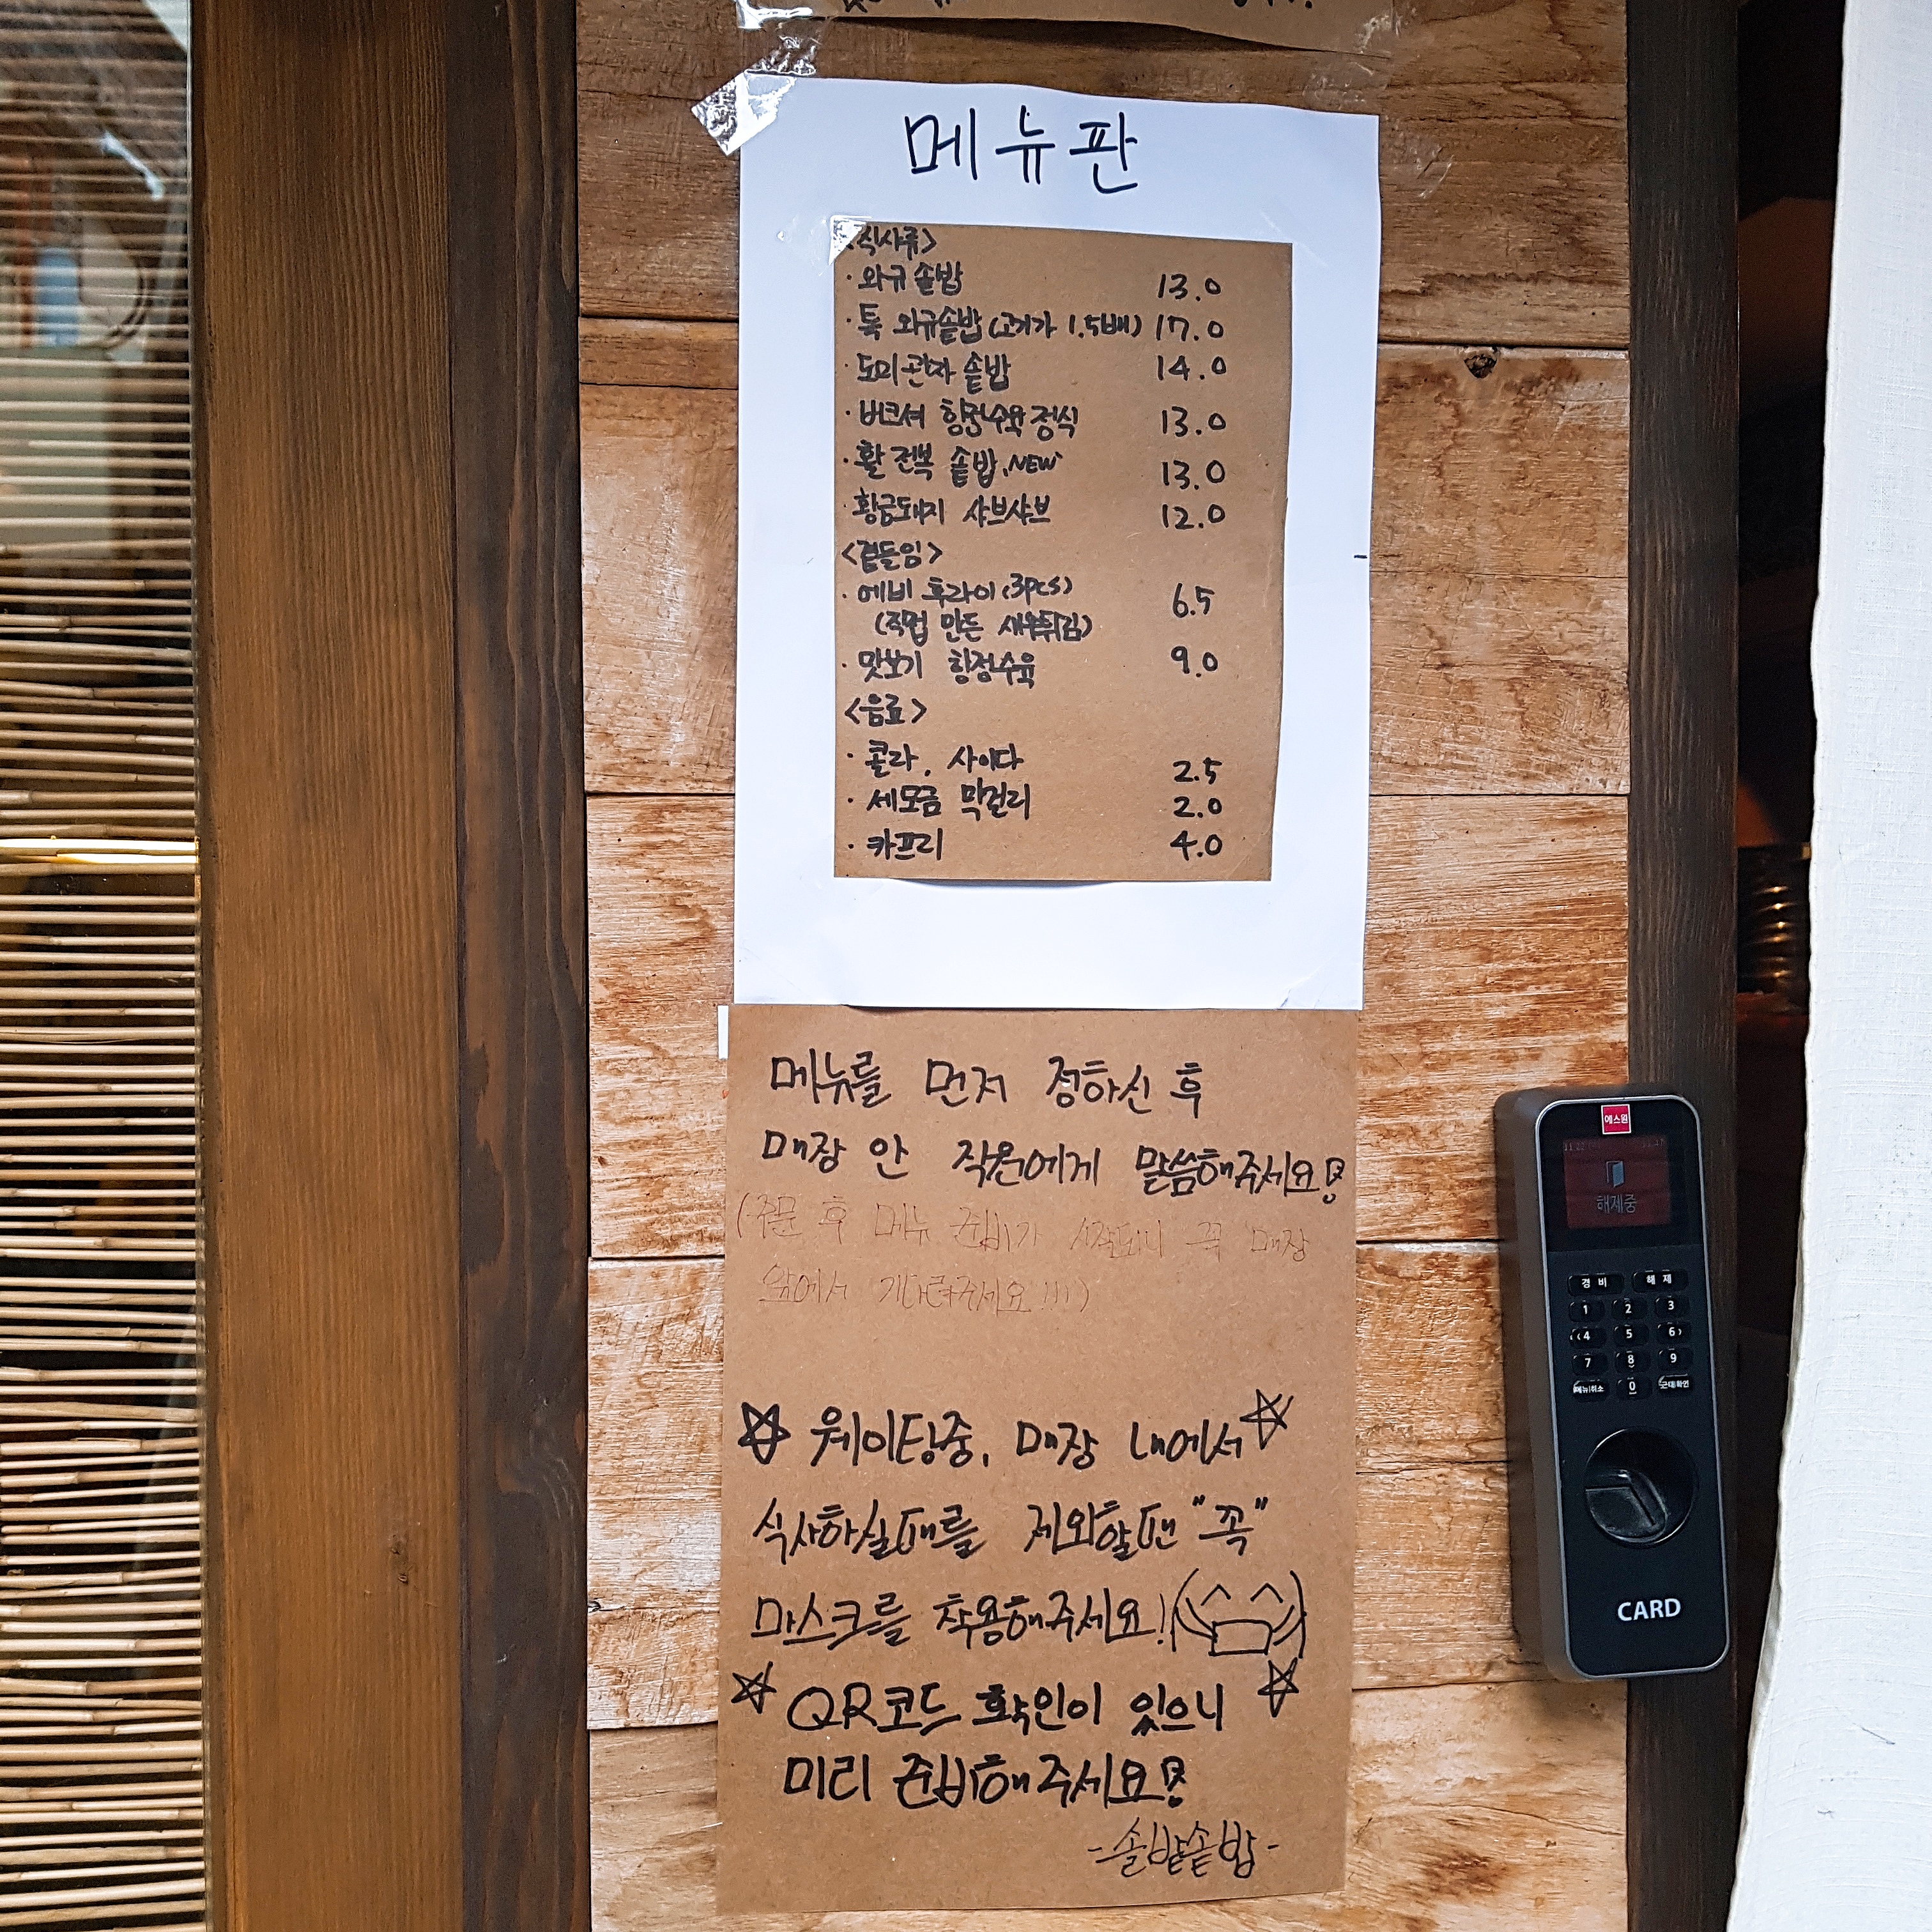 메뉴판
<식사류>
· 와규 솥밥 13.0
· 특 와규솥밥 (고기가 1.5배) 17.0
· 도미관자 솥밥 14.0
· 버크셔 항정수육 정식 13.0
· 활 전복 솥밥 'NEW' 13.0
· 황금돼지 샤브샤브 12.0
<곁들임>
· 에비 후라이 (3pcs) 6.5
(직접 만든 새우튀김)
· 맛보기 항정수육 9.0
<음료>
· 콜라, 사이다 2.5
· 세모금 막걸리 2.0
· 카프리 4.0
메뉴를 먼저 정하신 후
매장 안 직원에게 말씀해주세요!
(주문 후 메뉴 준비가 시작되니 꼭 매장
앞에서 기다려주세요!!!)
☆ 웨이팅중, 매장 내에서 ☆
식사하실때를 제외할땐 "꼭"
마스크를 착용해주세요!
☆ QR코드 확인이 있으니 ☆
미리 준비해주세요!
-솔밭솥밥-
에스원
해제중
경비 해제
1 2 3
4 5 6
7 8 9
메뉴/취소 0 근태/확인
CARD